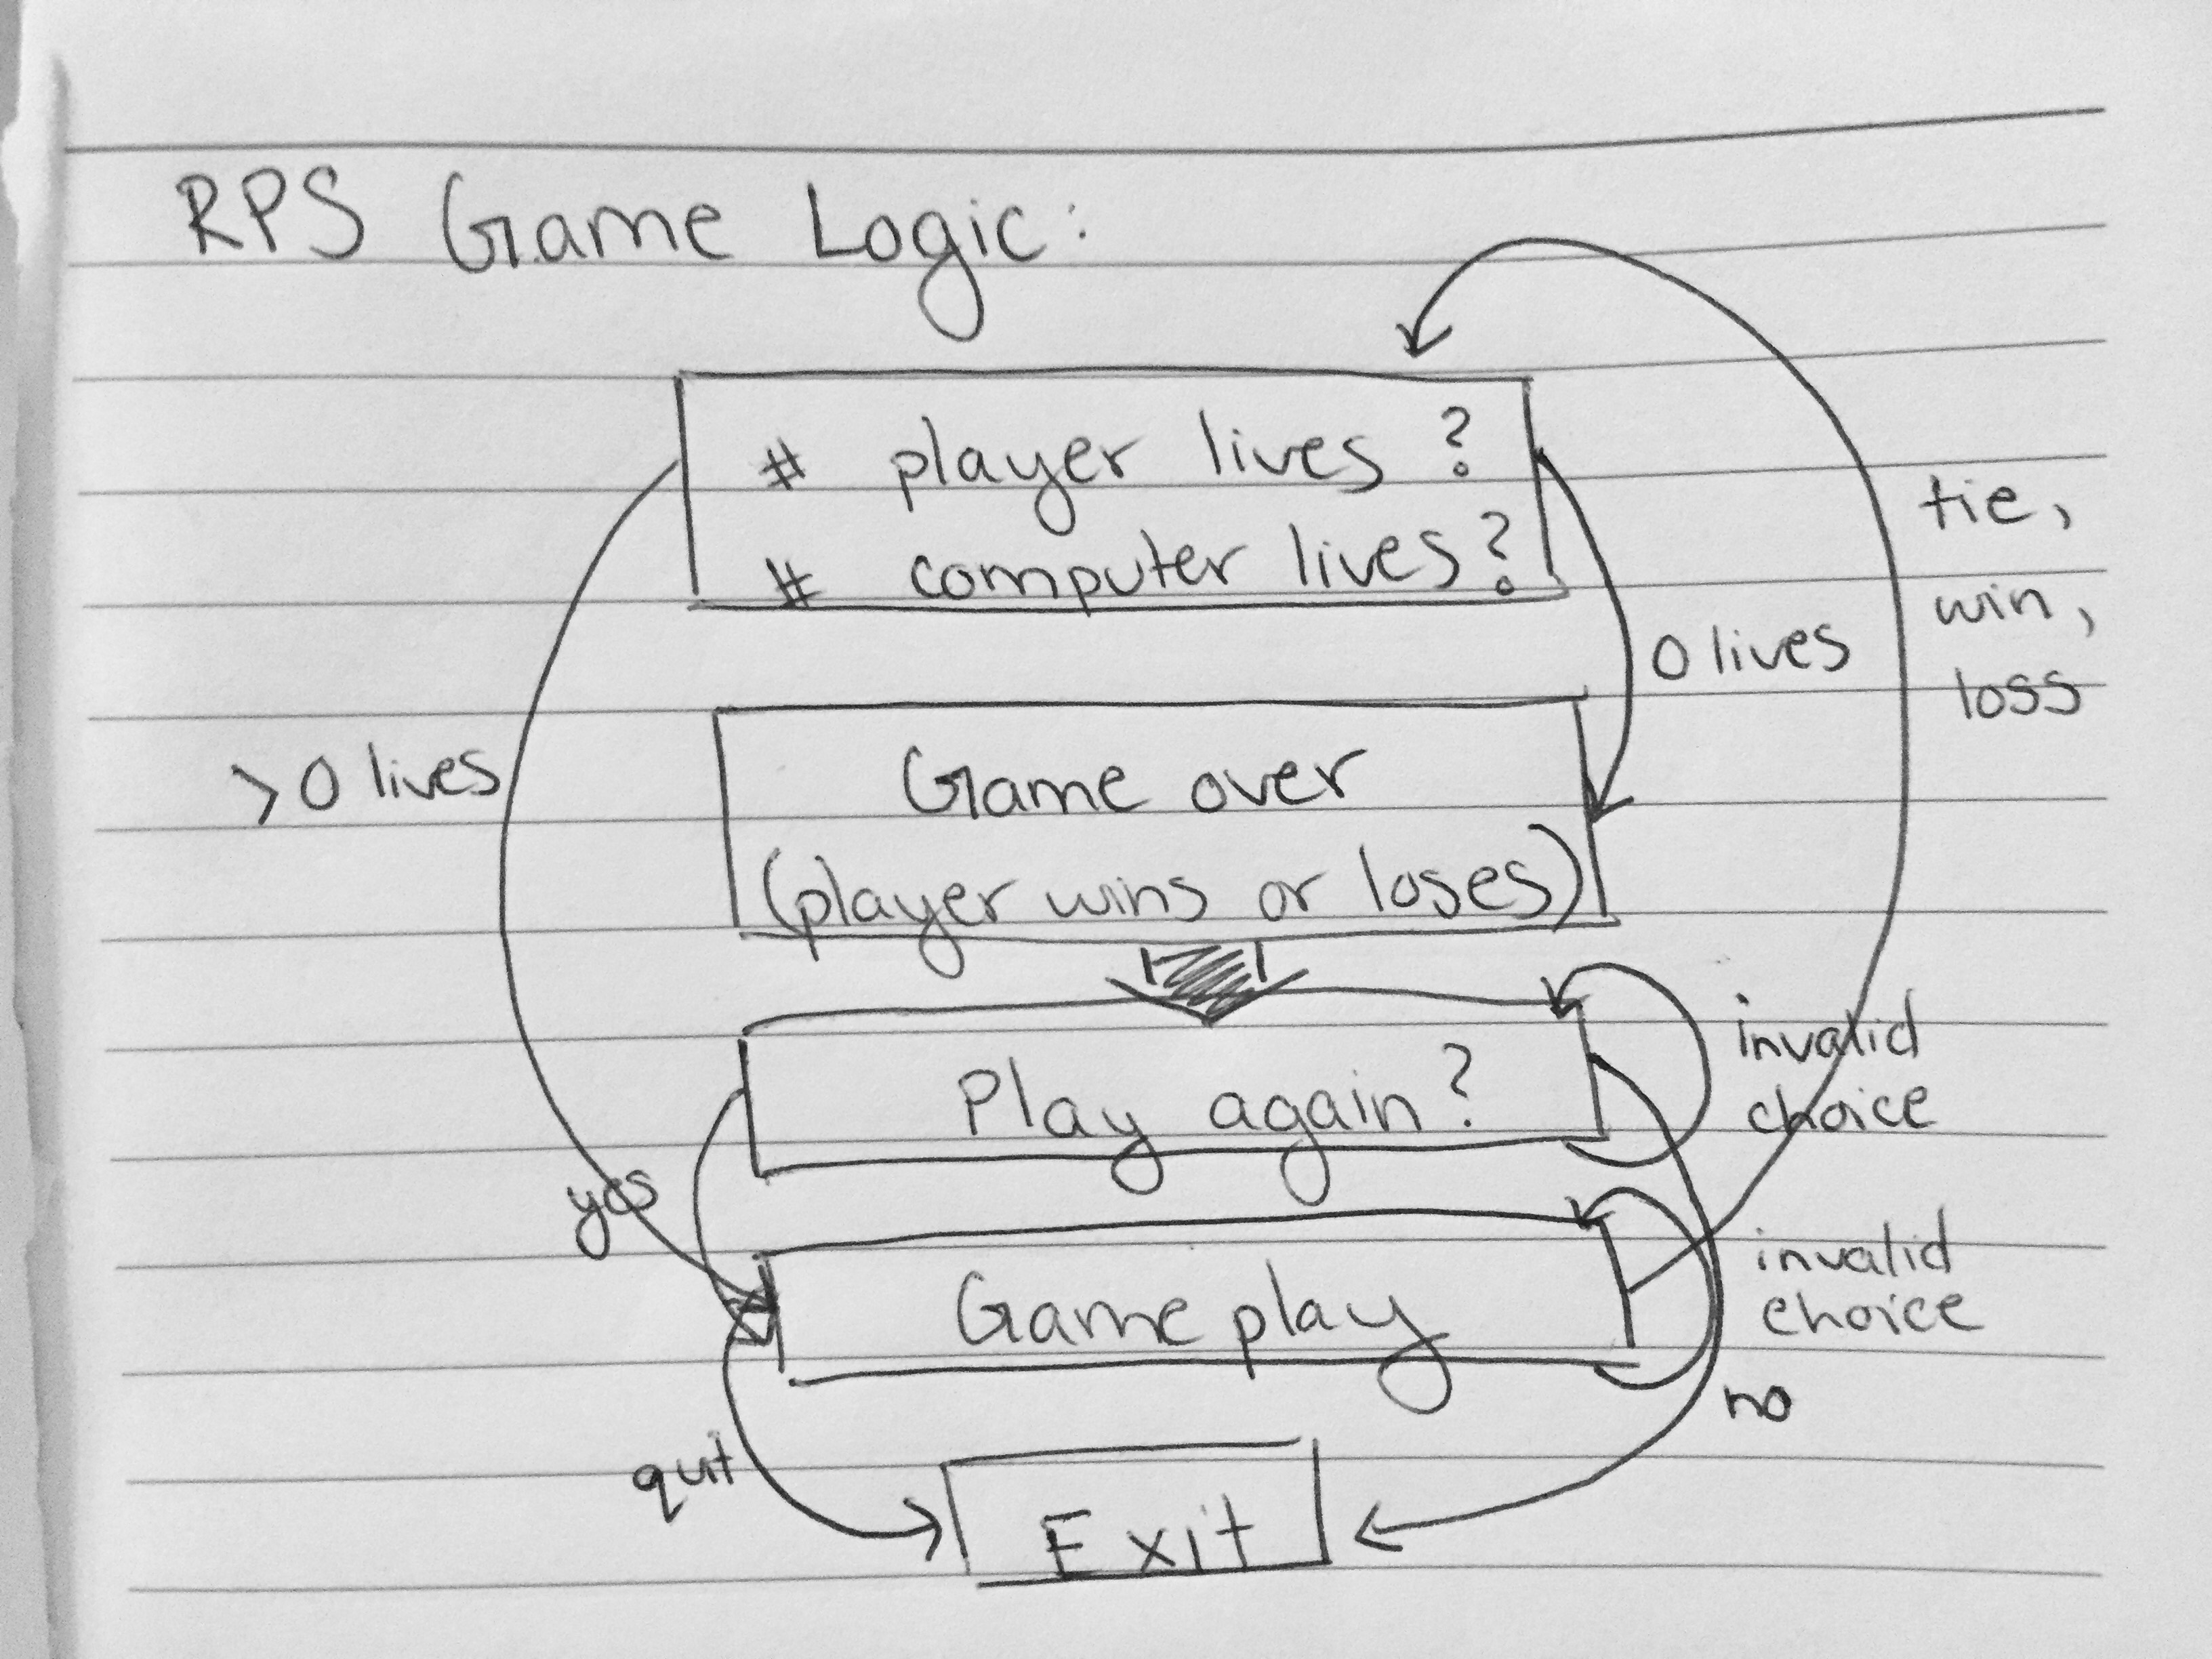 RPS Game Logic:
# player lives?
# computer lives?
tie,
win,
loss
0 lives
>0 lives
Game over
(player wins or loses)
Play again?
invalid
choice
yes
Game play
invalid
choice
no
quit
Exit